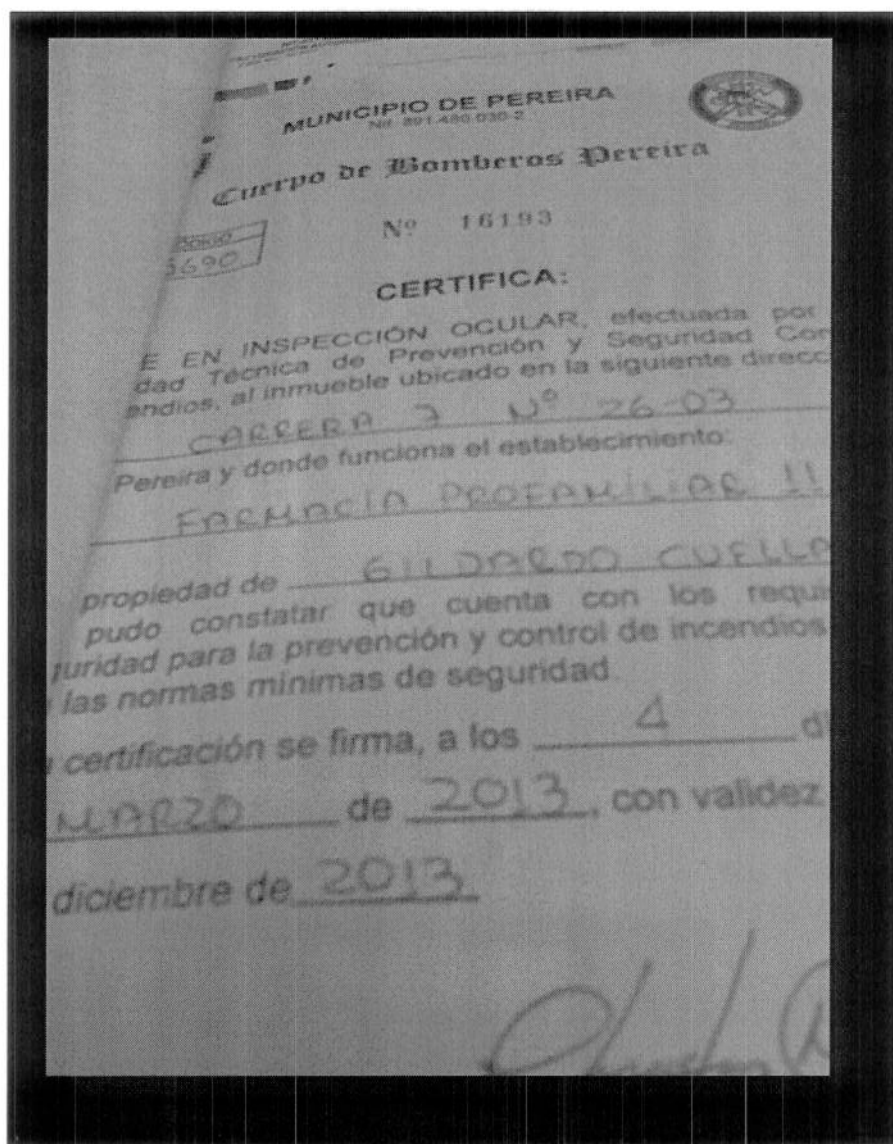 MUNICIPIO DE PEREIRA
Nit. 891.480.030-2
Cuerpo de Bomberos Pereira
Nº 16193
3690
CERTIFICA:
E EN INSPECCIÓN OCULAR, efectuada por
dad Técnica de Prevención y Seguridad Con
endios, al inmueble ubicado en la siguiente direcc
CARRERA 7 Nº 26-03
Pereira y donde funciona el establecimiento:
FARMACÍA PROFAMÍLIAR 11
propiedad de GILDARDO CUELLA
pudo constatar que cuenta con los requi
guridad para la prevención y control de incendios,
las normas mínimas de seguridad.
certificación se firma, a los 4 di
MARZO de 2013, con validez
diciembre de 2013